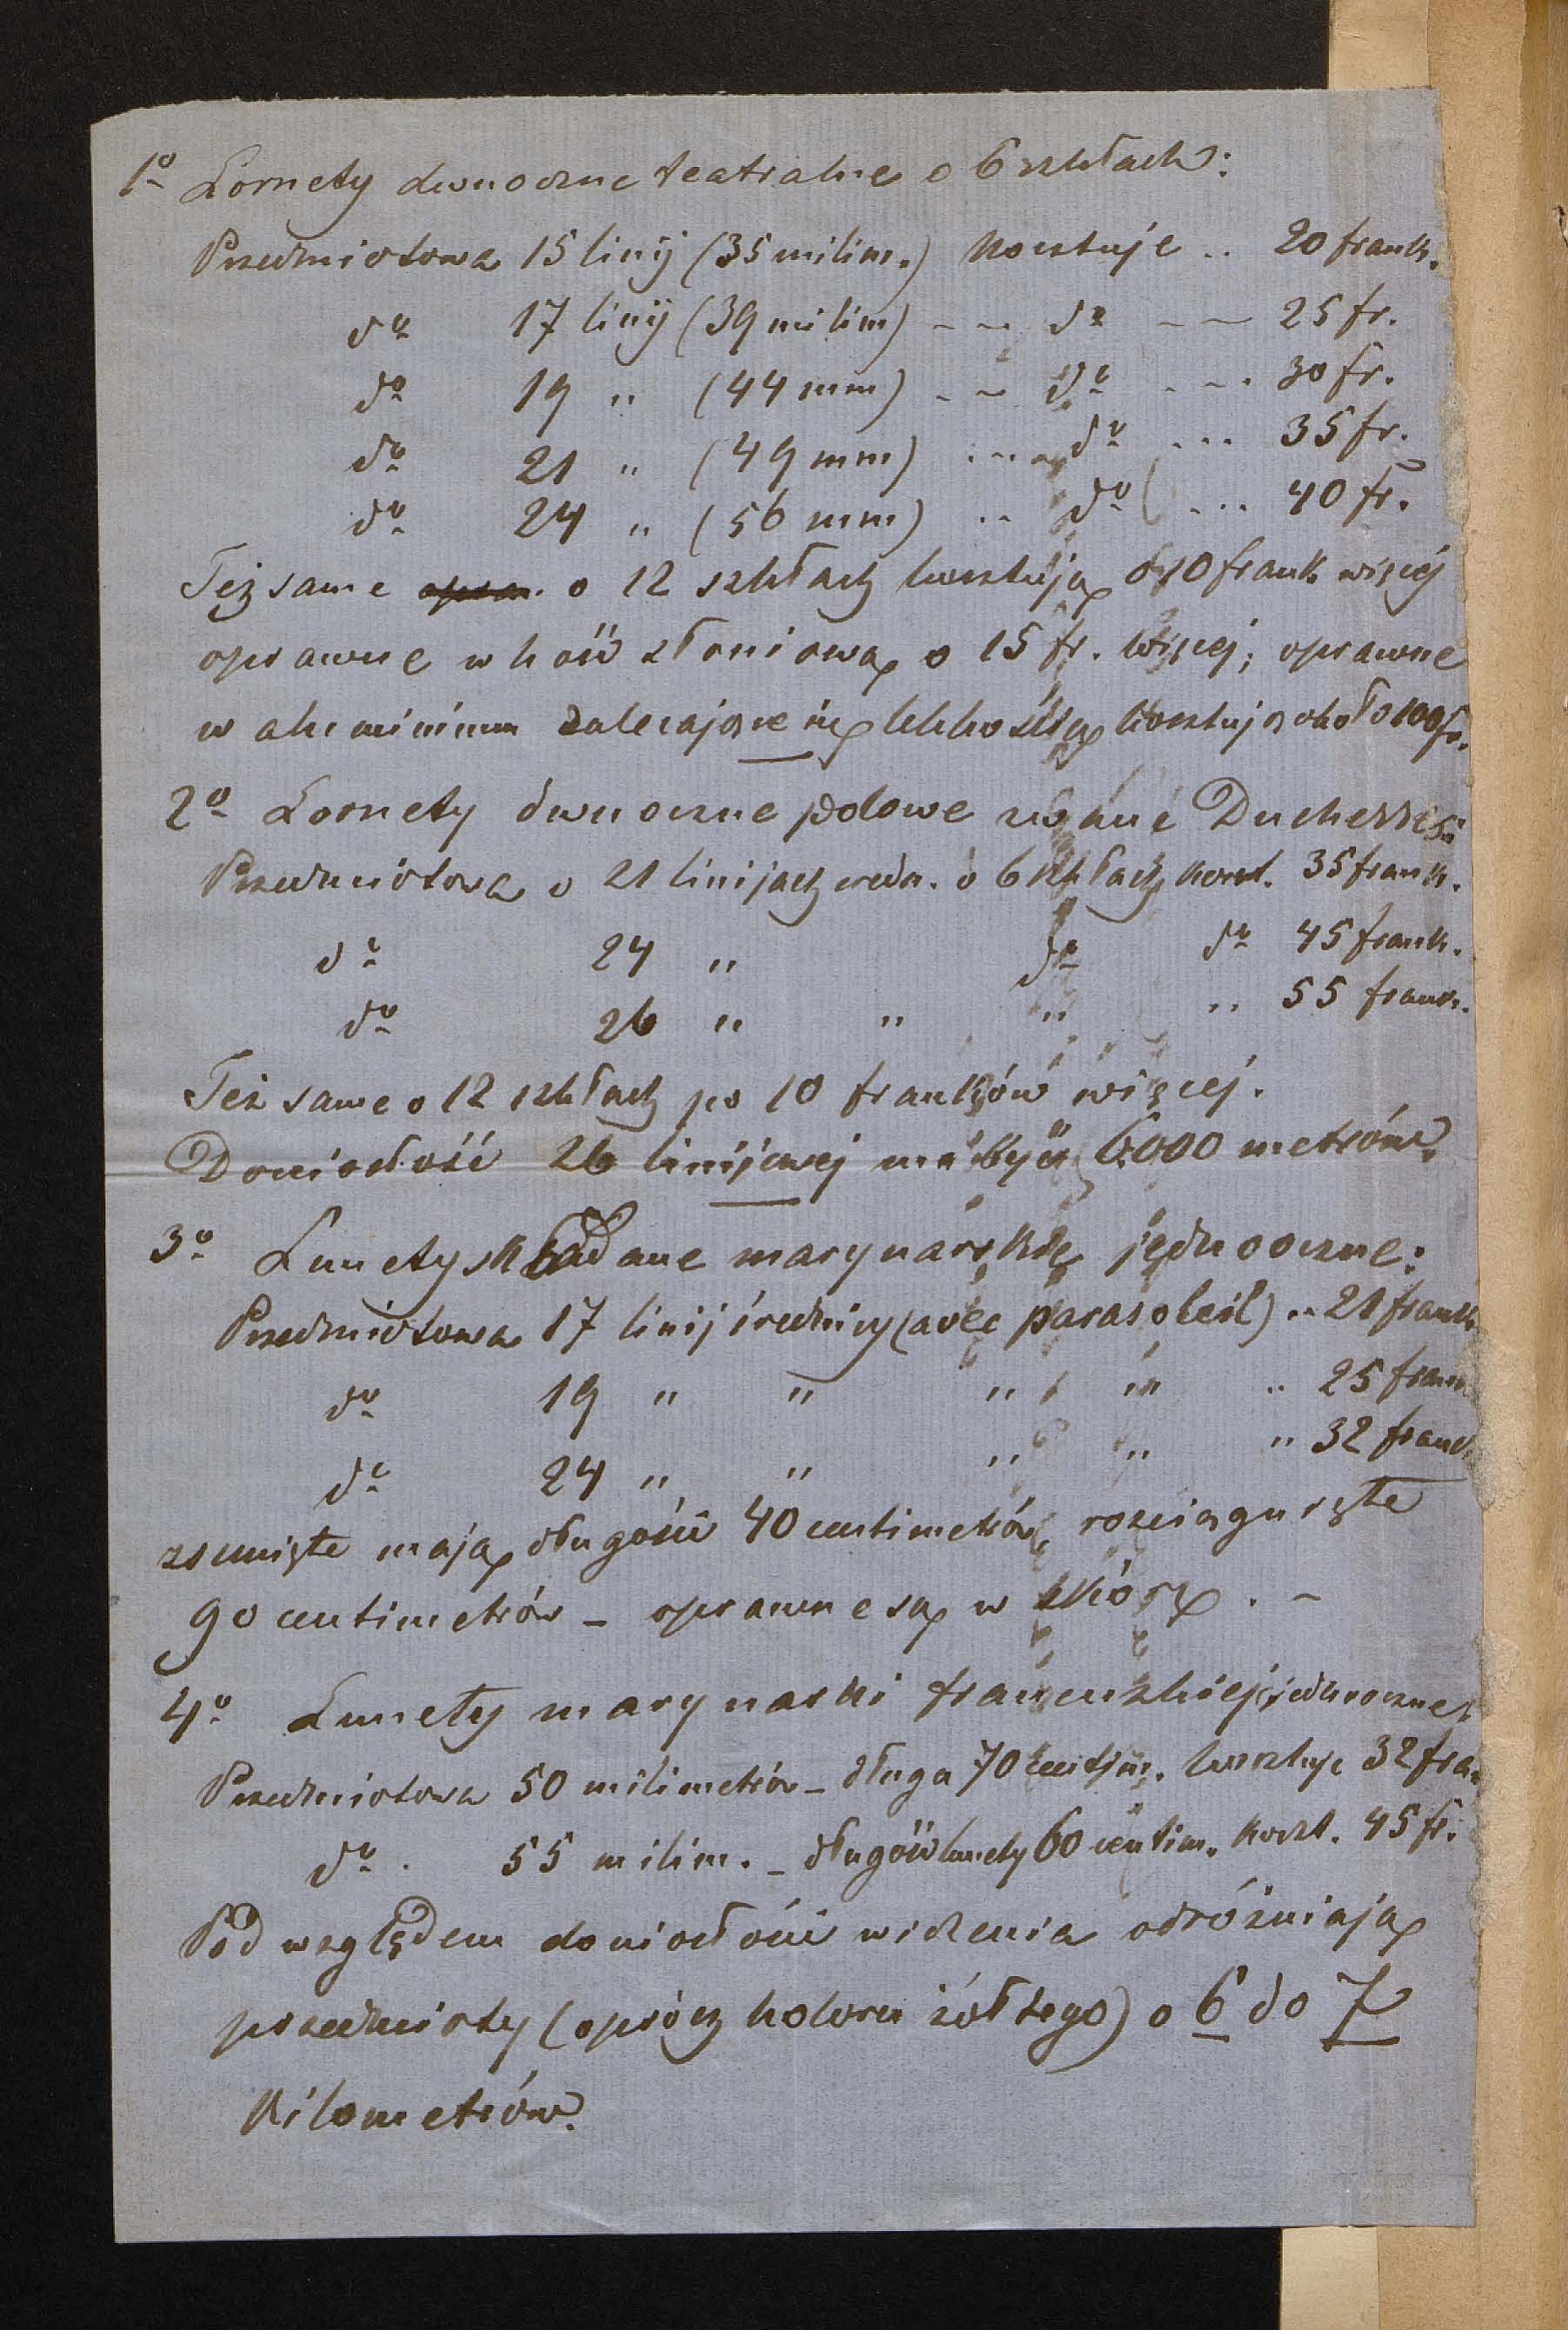 1o Lornety dwuoczne teatralne o 6 szkłach:
Przedmiotowa 15 linij (35 milim.) kosztuje .. 20 frank.
do 17 linij (39 milim) - - do - - 25 fr.
do 19 " (44 mm) - - do - - - 30 fr.
do 21 " (49 mm) ... do ... 35 fr.
do 24 " (56 mm) .. do ... 40 fr.
Też same opra. o 12 szkłach kosztują o 10 frank więcéj
oprawne w kość słoniową o 15 fr. więcej; oprawne
w aluminium zalecające się lekkością kosztują około 100 fr.
2o Lornety dwuoczne polowe zwane
Przedmiotowa o 21 linijach średn. o 6 szkłach koszt. 35 frank.
do 24 " do do 45 frank.
do 26 " " " " 55 frank.
Też same o 12 szkłach po 10 franków więcéj.
Doniosłość 26 linijowej ma być 6000 metrów.
3o Lunety składane marynarskie jednooczne:
Przedmiotowa 17 linij średnicy (avec parasoleil) .. 21 frank
do 19 " " " " .. 25 frank
do 24 " " " " " 32 frank
zsunięte mają długości 40 centimetrów, rozciągnięte
90 centimetrów - oprawne są w skórę. -
4o Lunety marynarki francuzkiej jednooczne.
Przedmiotowa 50 milimetrów - długa 70 centim. kosztuje 32 fra.
do. 55 milim. - długość lunety 60 centim. koszt. 45 fr.
Pod względem doniosłości widzenia odróżniają
przedmioty (oprócz koloru żółtego) o 6 do 7
kilometrów.